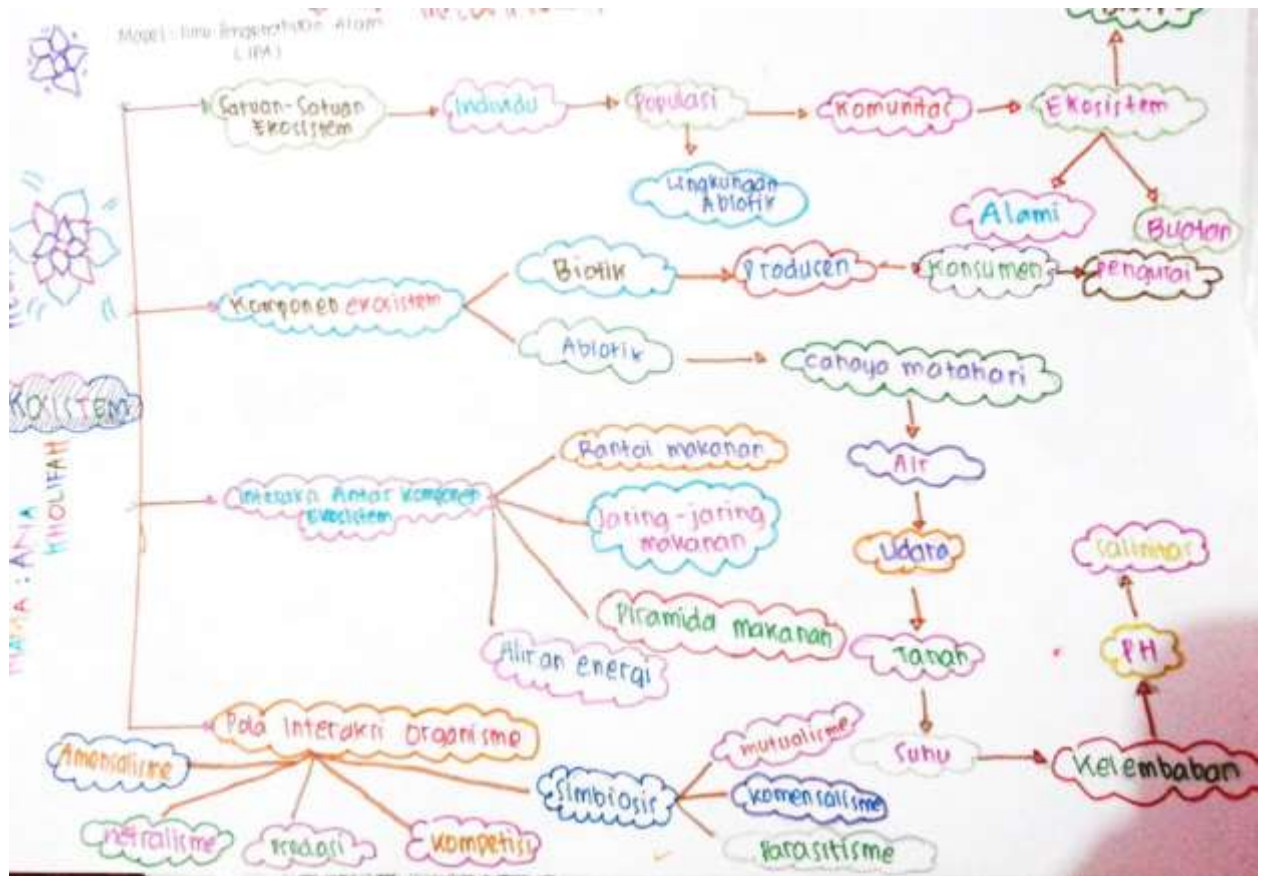 Mapel : Ilmu Pengetahuan Alam
(IPA)
Satuan-Satuan
Ekosistem
Individu
Populasi
Komunitas
Ekosistem
Lingkungan
Abiotik
Alami
Buatan
Komponen ekosistem
Biotik
Producen
Konsumen
Pengurai
Abiotik
Cahaya matahari
Air
Udara
Tanah
Suhu
Kelembaban
PH
Salinitas
KOSISTEM
NAMA : ANA
KHOLIFAH
Interaksi Antar Komponen
Ekosistem
Rantai makanan
Jaring-jaring
makanan
Piramida makanan
Aliran energi
Pola Interaksi organisme
Amensalisme
netralisme
Predasi
Kompetisi
Simbiosis
mutualisme
Komensalisme
Parasitisme